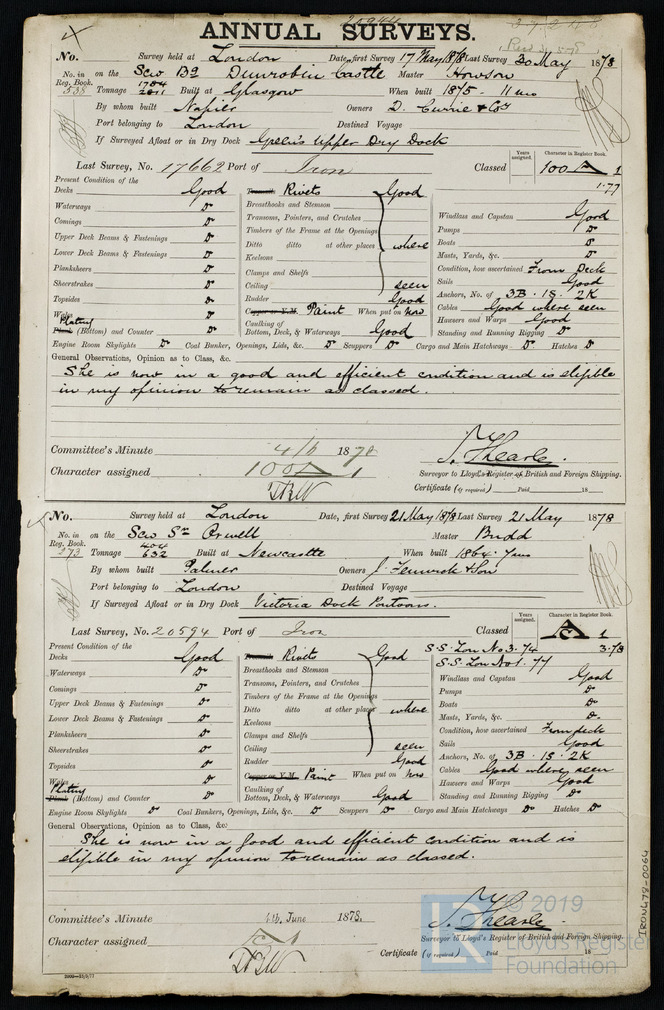 ANNUAL SURVEYS.
No. Survey held at London Date, first Survey 17 May 1878 Last Survey 30 May 1878
No. in Reg. Book. 538 on the Scw Bq Dunrobin Castle Master Howson
Tonnage 1784 2811 Built at Glasgow When built 1875 - 11 mo
By whom built Napier Owners D. Currie & Co
Port belonging to London Destined Voyage
If Surveyed Afloat or in Dry Dock Green's Upper Dry Dock
Last Survey, No. 17662 Port of Iron Classed Years assigned. Character in Register Book. 100 A 1
1.77
Present Condition of the
Decks Good
Waterways Do
Comings Do
Upper Deck Beams & Fastenings Do
Lower Deck Beams & Fastenings Do
Planksheers Do
Sheerstrakes Do
Topsides Do
Wales Do
Plating (Bottom) and Counter Do
Rivets Good
Breasthooks and Stemson
Transoms, Pointers, and Crutches
Timbers of the Frame at the Openings
Ditto ditto at other places where
Keelsons
Clamps and Shelfs
Ceiling seen
Rudder Good
Copper or Y.M. Paint When put on now
Caulking of Bottom, Deck, & Waterways Good
Windlass and Capstan Good
Pumps Do
Boats Do
Masts, Yards, &c. Do
Condition, how ascertained From Deck
Sails Good
Anchors, No. of 3B . 1S . 2K
Cables Good where seen
Hawsers and Warps Good
Standing and Running Rigging Do
Engine Room Skylights Do Coal Bunker, Openings, Lids, &c. Do Scuppers Do Cargo and Main Hatchways Do Hatches Do
General Observations, Opinion as to Class, &c.
She is now in a good and efficient condition and is eligible
in my opinion to remain as classed.
Committee's Minute 4/6 1878
Character assigned 100 A 1
Surveyor to Lloyd's Register of British and Foreign Shipping.
Certificate (if required) Paid 18
No. Survey held at London Date, first Survey 21 May 1878 Last Survey 21 May 1878
No. in Reg. Book. 273 on the Scw Sr Orwell Master Budd
Tonnage 632 Built at Newcastle When built 1864 . 7mo
By whom built Palmer Owners J. Fenwick & Son
Port belonging to London Destined Voyage
If Surveyed Afloat or in Dry Dock Victoria Dock Pontoons.
Last Survey, No. 20594 Port of Iron Classed Years assigned. Character in Register Book. A 1
S.S. Lon No 3. 74 3.78
S.S. Lon No 1. 77
Present Condition of the
Decks Good
Waterways Do
Comings Do
Upper Deck Beams & Fastenings Do
Lower Deck Beams & Fastenings Do
Planksheers Do
Sheerstrakes Do
Topsides Do
Wales Do
Plating (Bottom) and Counter Do
Rivets Good
Breasthooks and Stemson
Transoms, Pointers, and Crutches
Timbers of the Frame at the Openings
Ditto ditto at other places where
Keelsons
Clamps and Shelfs
Ceiling seen
Rudder Good
Copper or Y.M. Paint When put on
Caulking of Bottom, Deck, & Waterways Good
Windlass and Capstan Good
Pumps Do
Boats Do
Masts, Yards, &c. Do
Condition, how ascertained From deck
Sails Good
Anchors, No. of 3B . 1S . 2K
Cables Good where seen
Hawsers and Warps Good
Standing and Running Rigging Do
Engine Room Skylights Do Coal Bunkers, Openings, Lids, &c. Do Scuppers Do Cargo and Main Hatchways Do Hatches Do
General Observations, Opinion as to Class, &c.
She is now in a good and efficient condition and is
eligible in my opinion to remain as classed.
Committee's Minute 4th June 1878.
Character assigned A 1
Surveyor to Lloyd's Register of British and Foreign Shipping.
Certificate (if required) Paid 18
© 2019
Lloyd's Register
Foundation
IRON478-0064